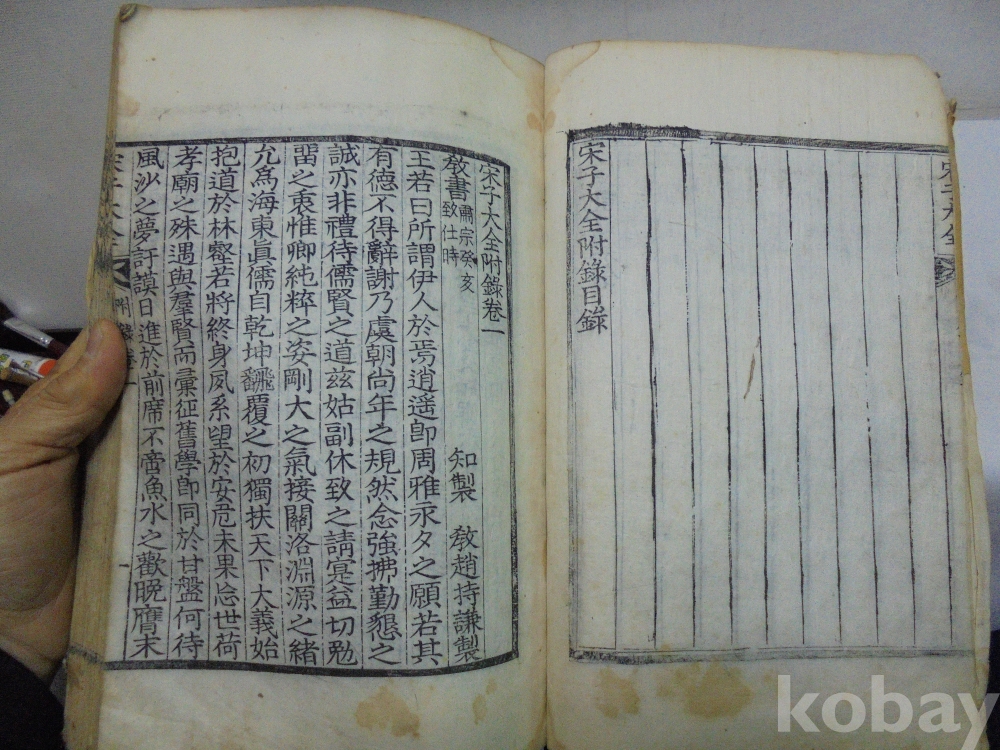 宋子大全附錄目錄
宋子大全附錄卷一
敎書 肅宗癸亥
致仕時
知製 敎趙持謙製
王若曰所謂伊人於焉逍遙卽周雅永夕之願若其
有德不得辭謝乃虞朝尙年之規然念強拂勤懇之
誠亦非禮待儒賢之道玆姑副休致之請寔益切勉
留之衷惟卿純粹之姿剛大之氣接關洛淵源之緖
允爲海東眞儒自乾坤飜覆之初獨扶天下大義始
抱道於林壑若將終身夙系望於安危未果忘世荷
孝廟之殊遇與羣賢而彙征舊學卽同於甘盤何待
風沙之夢訏謨日進於前席不啻魚水之歡晚膺末
宋子大全
附錄卷一
kobay